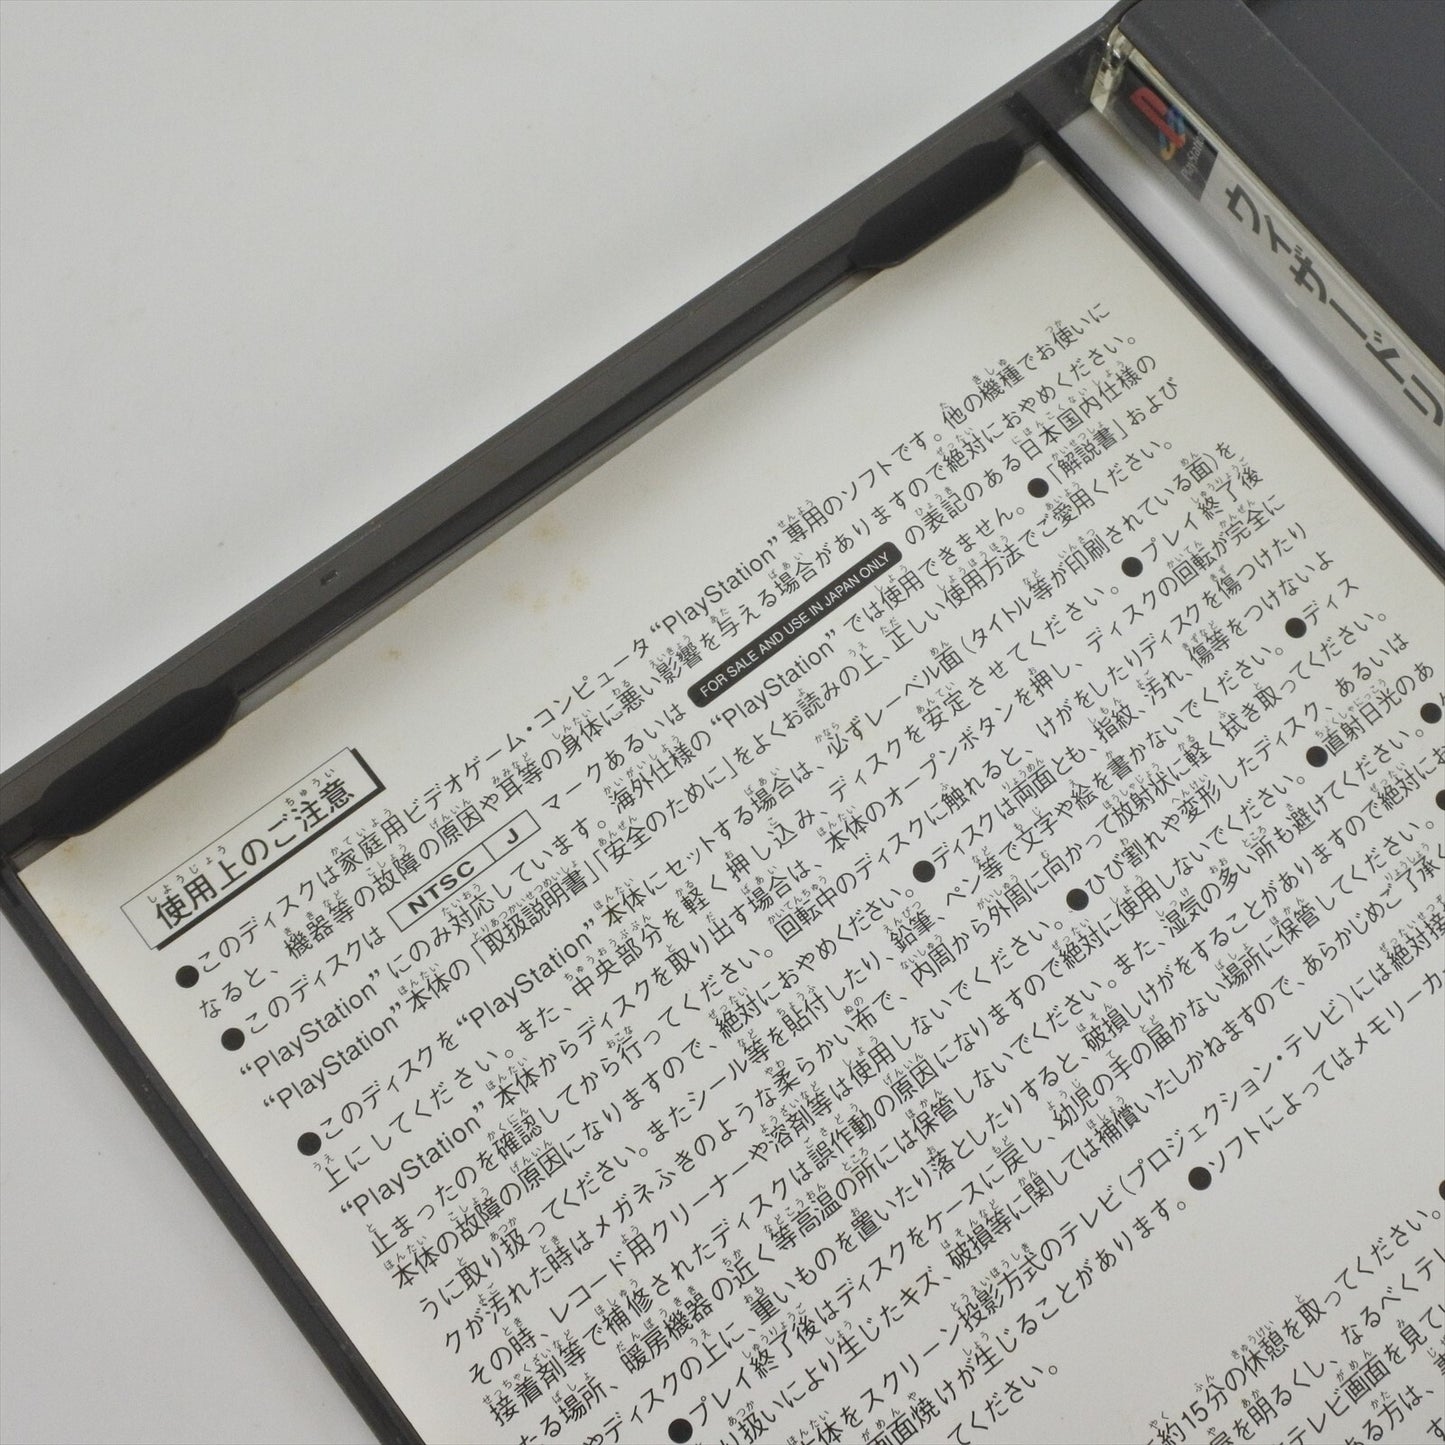 PlayStation
ウィザードリ
使用上のご注意
●このディスクは家庭用ビデオゲーム・コンピュータ“PlayStation”専用のソフトです。他の機種でお使いに
なると、機器等の故障の原因や耳等の身体に悪い影響を与える場合がありますので絶対におやめください。
●このディスクは NTSC J マークあるいは FOR SALE AND USE IN JAPAN ONLY の表記のある日本国内仕様の
“PlayStation”にのみ対応しています。海外仕様の“PlayStation”では使用できません。●「解説書」および
“PlayStation”本体の「取扱説明書」「安全のために」をよくお読みの上、正しい使用方法でご愛用ください。
●このディスクを“PlayStation”本体にセットする場合は、必ずレーベル面(タイトル等が印刷されている面)を
上にしてください。また、中央部分を軽く押し込み、ディスクを安定させてください。●プレイ終了後
“PlayStation”本体からディスクを取り出す場合は、本体のオープンボタンを押し、ディスクの回転が完全に
止まったのを確認してから行ってください。回転中のディスクに触れると、けがをしたりディスクを傷つけたり
本体の故障の原因になりますので、絶対におやめください。●ディスクは両面とも、指紋、汚れ、傷等をつけないよ
うに取り扱ってください。またシール等を貼付したり、鉛筆、ペン等で文字や絵を書かないでください。●ディス
クが汚れた時はメガネふきのような柔らかい布で、内周から外周に向かって放射状に軽く拭き取ってください。
その時、レコード用クリーナーや溶剤等は使用しないでください。●ひび割れや変形したディスク、あるいは
接着剤等で補修されたディスクは誤作動の原因になりますので絶対に使用しないでください。●直射日光のあ
たる場所、暖房機器の近く等高温の所には保管しないでください。また、湿気の多い所も避けてください。●
やディスクの上に、重いものを置いたり落としたりすると、破損しけがをすることがありますので絶対に
●プレイ終了後はディスクをケースに戻し、幼児の手の届かない場所に保管してください。
扱いにより生じたキズ、破損等に関しては補償いたしかねますので、あらかじめご了承く
体をスクリーン投影方式のテレビ(プロジェクション・テレビ)には絶対接
画面焼けが生じることがあります。●ソフトによってはメモリーカ
てください。
約15分の休憩を取ってください。
を明るくし、なるべくテレ
テレビ画面を見て
ある方は、